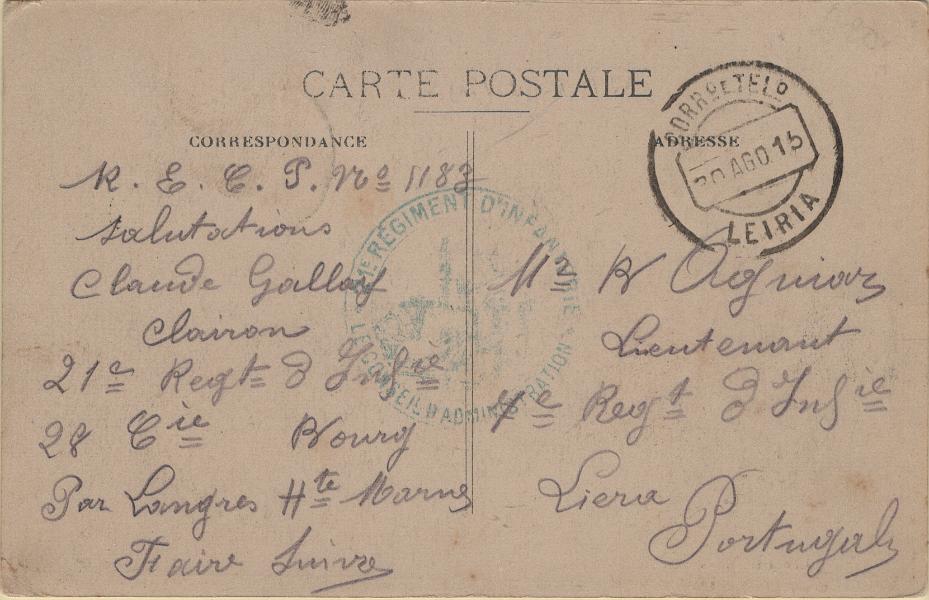 CARTE POSTALE
CORRESPONDANCE
R. E. C. P. No 1183
salutations
Claude Gallay
Clairon
21e Regt d Infie
28 Cie Bourg
Par Langres Hte Marne
Faire Suivre
21E RÉGIMENT D'INFANTERIE
LE CONSEIL D'ADMINISTRATION
ADRESSE
CORRO E TELO
30 AGO 15
LEIRIA
Mr B Aguiar
Lieutenant
7e Regt d Infie
Liera
Portugal